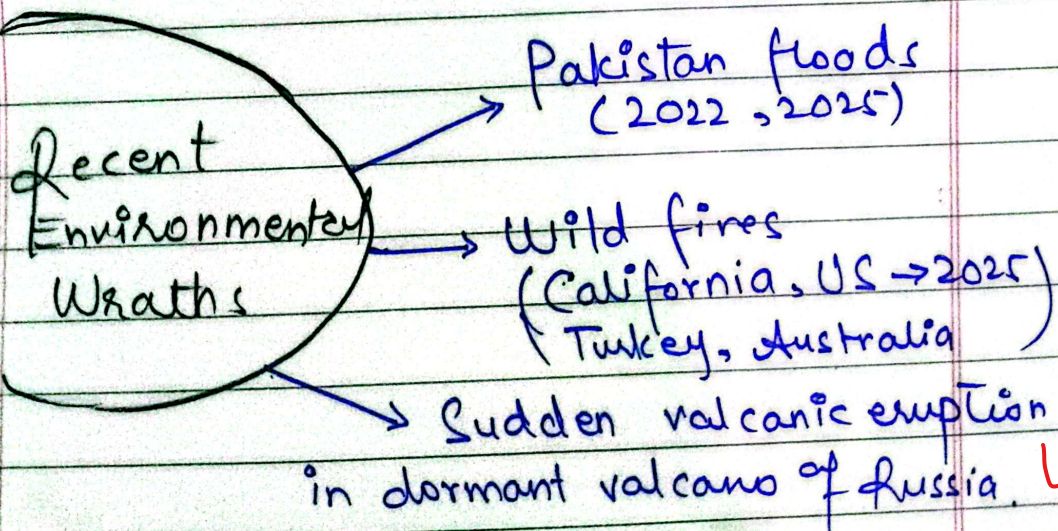 Recent
Environmental
Wraths
Pakistan floods
(2022, 2025)
Wild fires
(California, US → 2025)
Turkey, Australia
Sudden valcanic eruption
in dormant valcano of Russia.